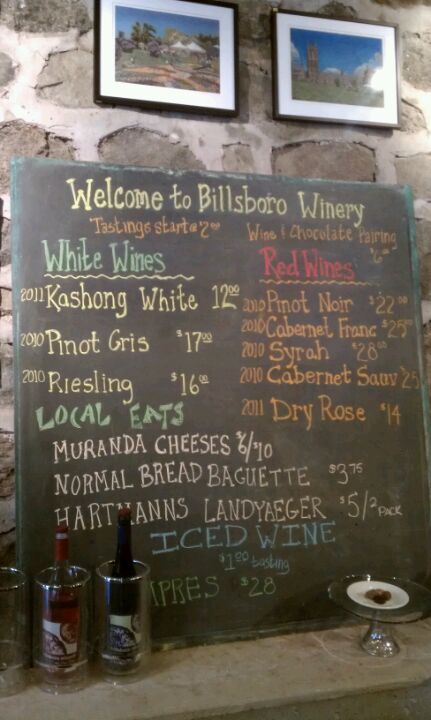 Welcome to Billsboro Winery
Tastings start @ 2.00
Wine & Chocolate Pairing
White Wines
2011 Kashong White 12.00
2010 Pinot Gris $17.00
2010 Riesling $16.00
Red Wines
2010 Pinot Noir $22.00
2010 Cabernet Franc $25.00
2010 Syrah $28.00
2010 Cabernet Sauv $25
2011 Dry Rose $14
LOCAL EATS
MURANDA CHEESES $6/$10
NORMAL BREAD BAGUETTE $3.75
HARTMANNS LANDYAEGER $5/2 PACK
ICED WINE
$1.00 tasting
$28